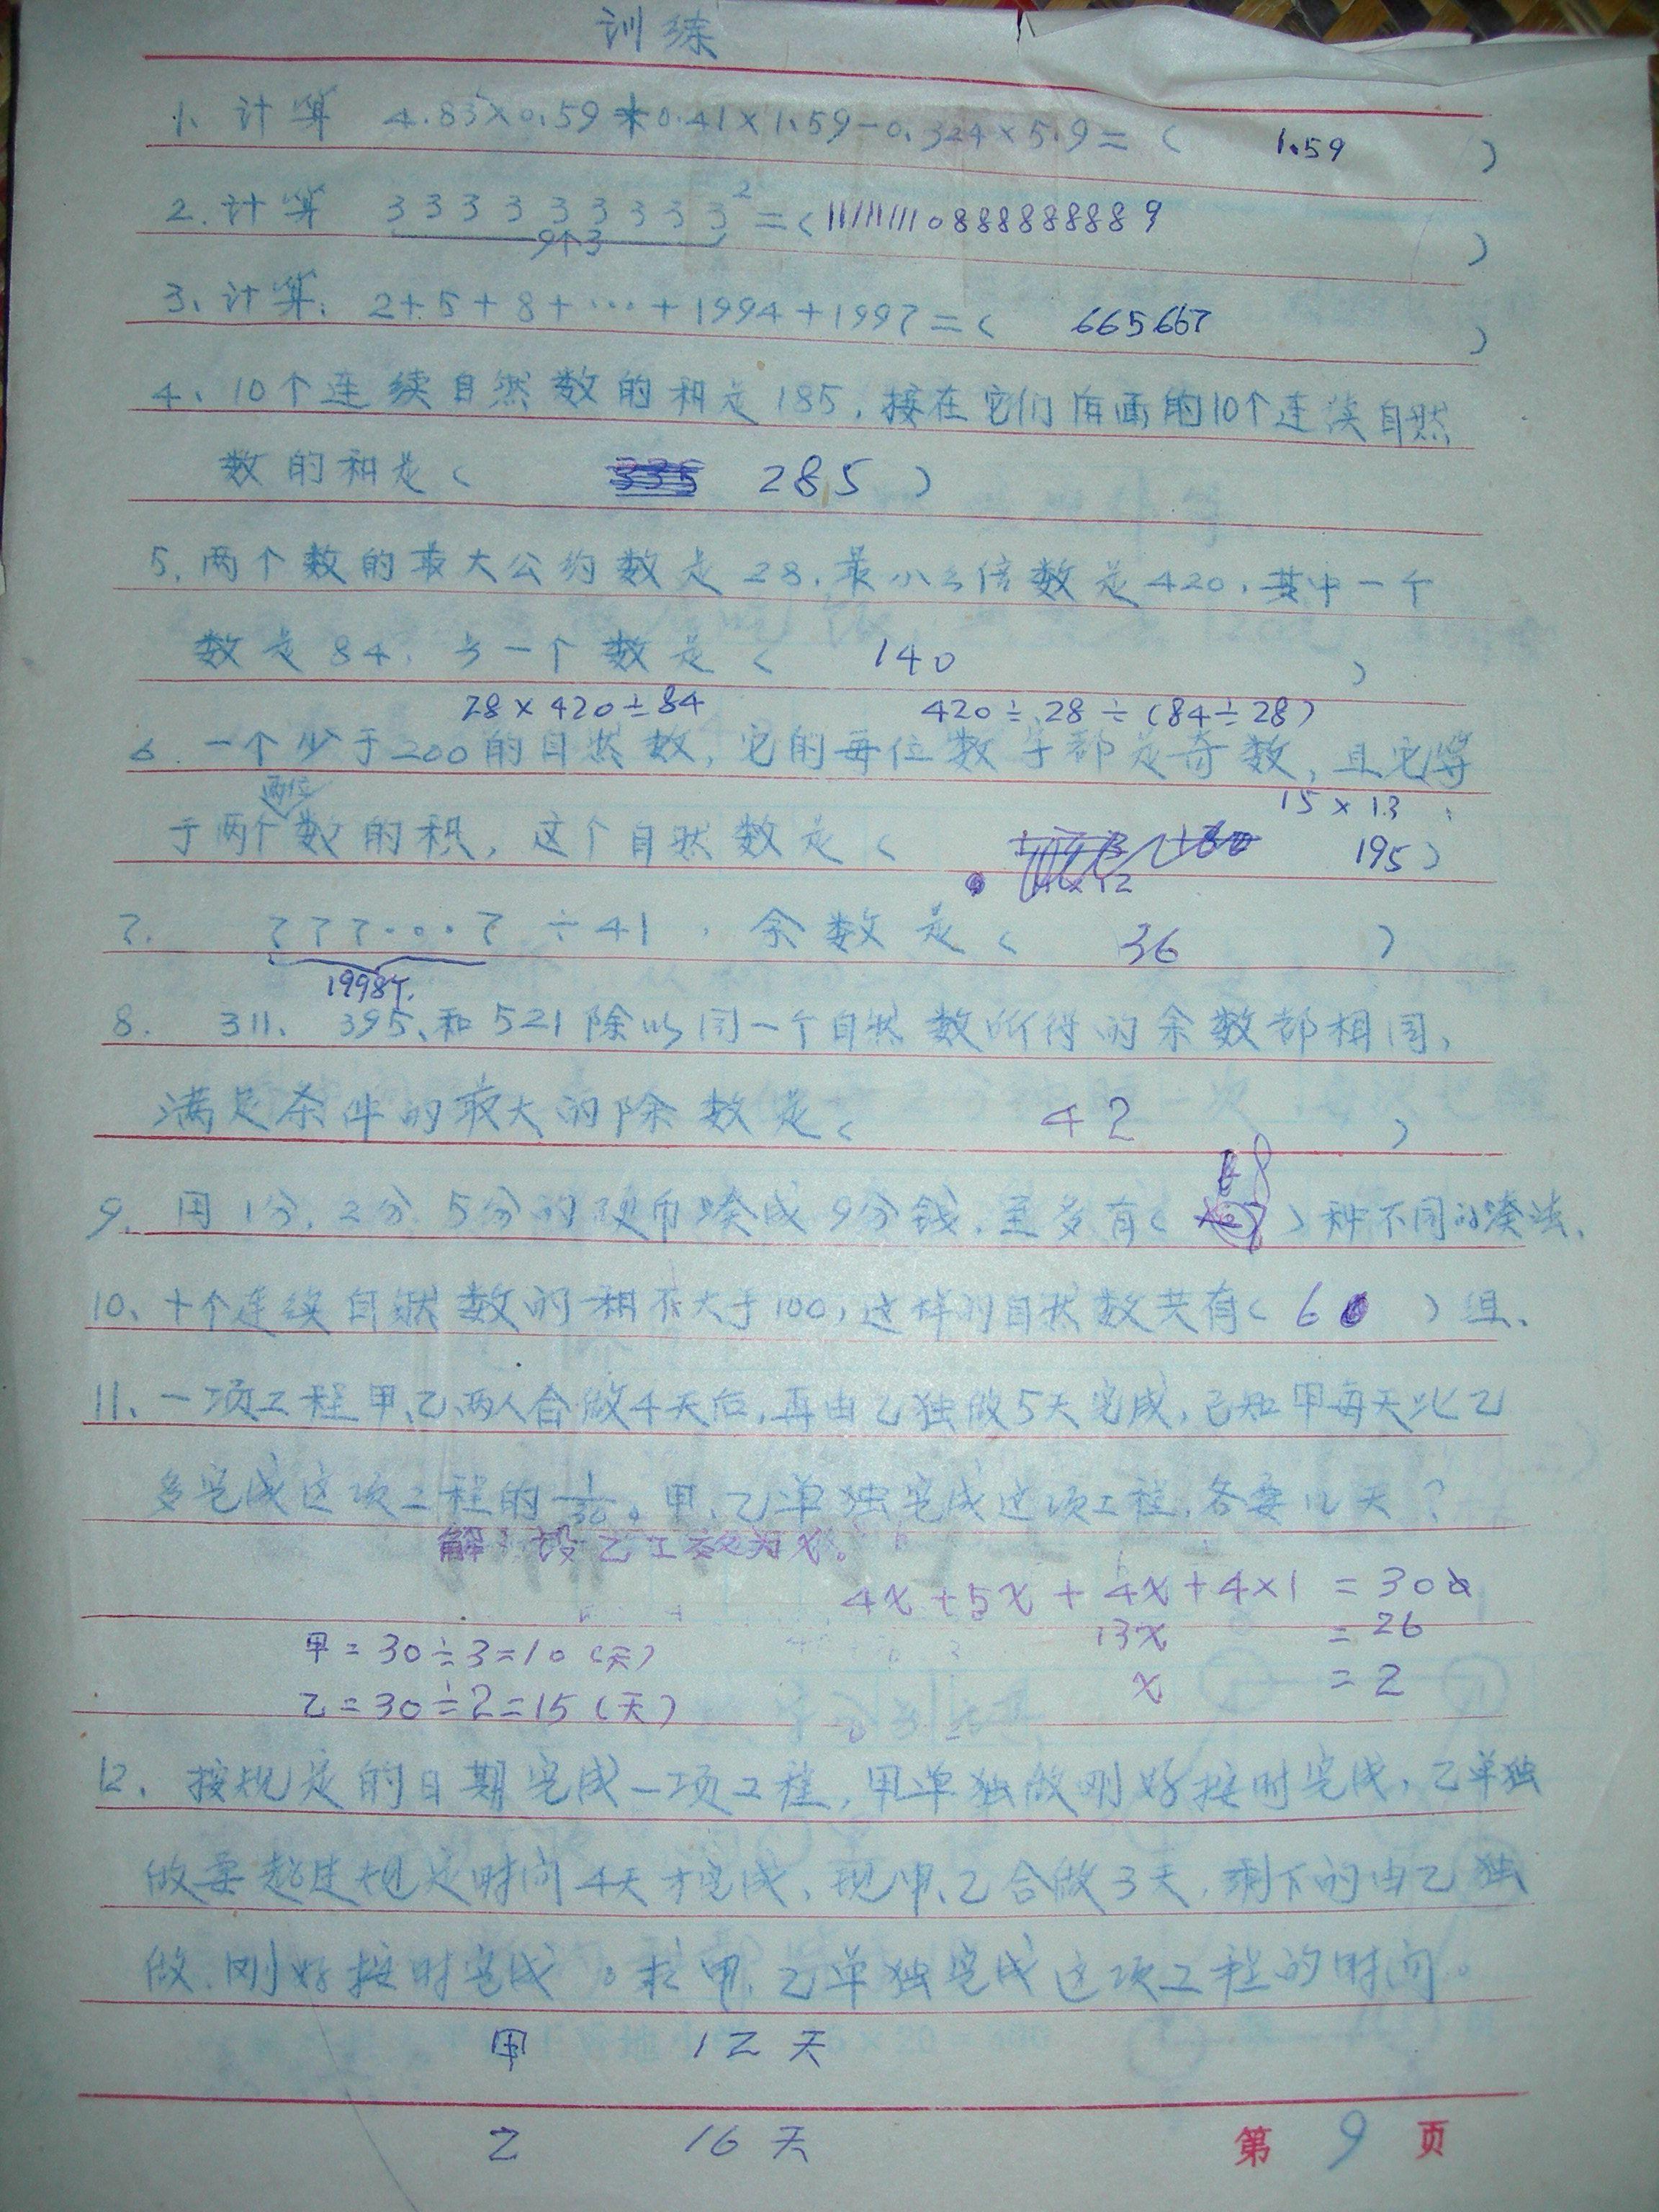 训练
1、计算 4.83×0.59+0.41×1.59-0.324×5.9=( 1.59 )
2.计算 333333333²=(111111110888888889 )
9个3
3、计算: 2+5+8+…+1994+1997=( 665667 )
4、10个连续自然数的和是185,接在它们后面的10个连续自然
数的和是( 285 )
5.两个数的最大公约数是28.最小公倍数是420,其中一个
数是84,另一个数是( 140 )
28×420÷84 420÷28÷(84÷28)
6.一个少于200的自然数,它的每位数字都是奇数,且它等
两位 15×13
于两个数的积,这个自然数是( 195)
7. 777...7 ÷41,余数是( 36 )
1998个
8. 311、395、和521除以同一个自然数所得的余数都相同,
满足条件的最大的除数是( 42 )
9.用1分,2分,5分的硬币凑成9分钱,至多有( 8 )种不同的凑法、
10、十个连续自然数的和不大于100,这样的自然数共有( 6 )组、
11、一项工程甲、乙、两人合做4天后,再由乙独做5天完成,已知甲每天比乙
多完成这项工程的1/30。甲、乙单独完成这项工程,各要几天?
解:设乙工效为x。
4x+5x+4x+4×1 =30
甲=30÷3=10(天) 13x =26
乙=30÷2=15(天) x =2
12、按规定的日期完成一项工程,甲单独做刚好按时完成,乙单独
做要超过规定时间4天才完成、现甲、乙合做3天,剩下的由乙独
做.刚好按时完成。求甲、乙单独完成这项工程的时间。
甲 12天
乙 16天
第9页